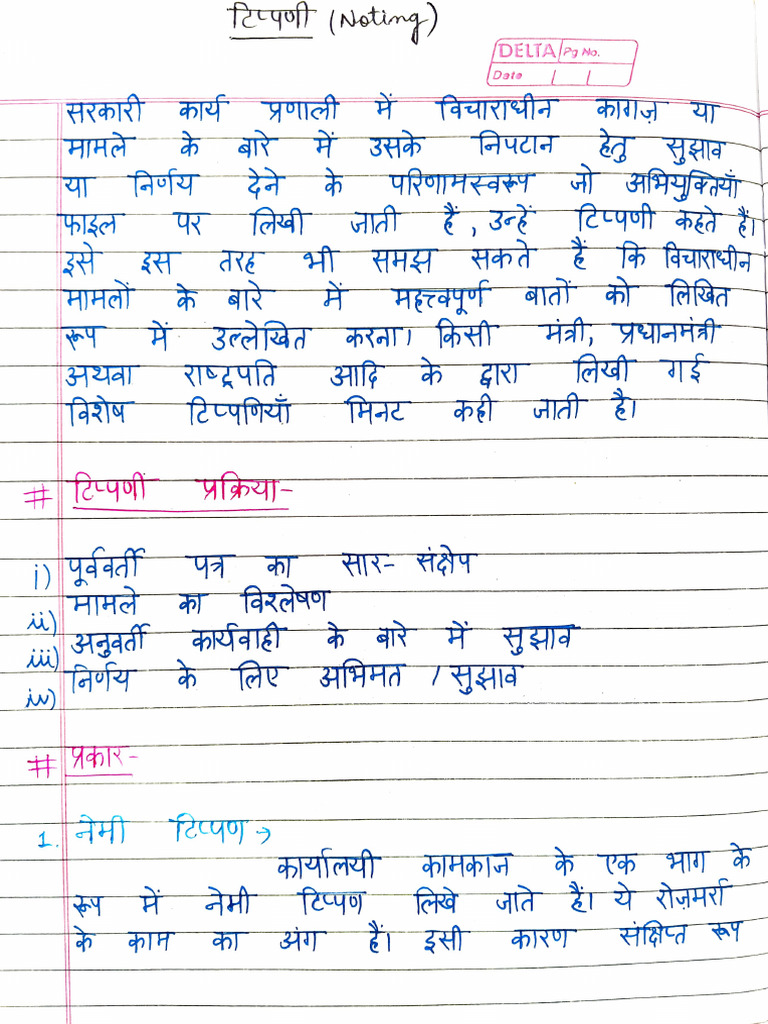 टिप्पणी (Noting)
DELTA Pg No.
Date / /
सरकारी कार्य प्रणाली में विचाराधीन कागज़ या
मामले के बारे में उसके निपटान हेतु सुझाव
या निर्णय देने के परिणामस्वरूप जो अभियुक्तियाँ
फाइल पर लिखी जाती हैं, उन्हें टिप्पणी कहते हैं।
इसे इस तरह भी समझ सकते हैं कि विचाराधीन
मामलों के बारे में महत्त्वपूर्ण बातों को लिखित
रूप में उल्लेखित करना। किसी मंत्री, प्रधानमंत्री
अथवा राष्ट्रपति आदि के द्वारा लिखी गई
विशेष टिप्पणियाँ मिनट कही जाती है।
# टिप्पणी प्रक्रिया-
i) पूर्ववर्ती पत्र का सार- संक्षेप
ii) मामले का विश्लेषण
iii) अनुवर्ती कार्यवाही के बारे में सुझाव
iv) निर्णय के लिए अभिमत / सुझाव
# प्रकार-
1. नेमी टिप्पण →
कार्यालयी कामकाज के एक भाग के
रूप में नेमी टिप्पण लिखे जाते हैं। ये रोज़मर्रा
के काम का अंग हैं। इसी कारण संक्षिप्त रूप